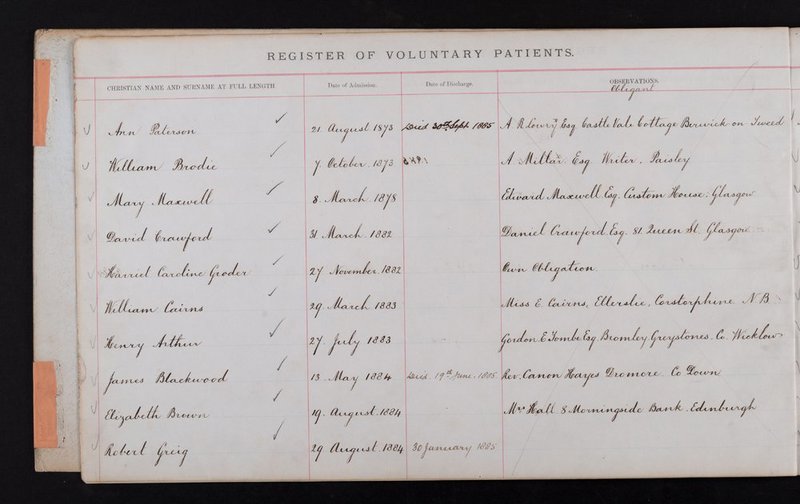 REGISTER OF VOLUNTARY PATIENTS.
CHRISTIAN NAME AND SURNAME AT FULL LENGTH. Date of Admission. Date of Discharge. OBSERVATIONS.
Obligant
Ann Paterson 21. August 1873 Died 30th Sept. 1885 A. R. Lowry Esq Castle Vale Cottage Berwick on Tweed
William Brodie 7. October. 1873 A. Millar. Esq. Writer. Paisley
Mary Maxwell 8. March. 1878 Edward Maxwell Esq. Custom House. Glasgow
David Crawford 31. March. 1882. Daniel Crawford Esq. 81. Queen St. Glasgow
Harriet Caroline 27 November. 1882 Own Obligation.
William Cairns 29. March. 1883 Miss E. Cairns, Ellerslie, Corstorphine. N B
Henry Arthur 27. July 1883 Gordon E Tombe Esq Bromley Greystones. Co. Wicklow
James Blackwood 13. May 1884 Died 19th June. 1885 Rev. Canon Hayes Dromore. Co Down
Elizabeth Brown 19. August. 1884 Mrs Hall 8 Morningside Bank. Edinburgh
Robert Greig 29 August. 1884 30 January 1885